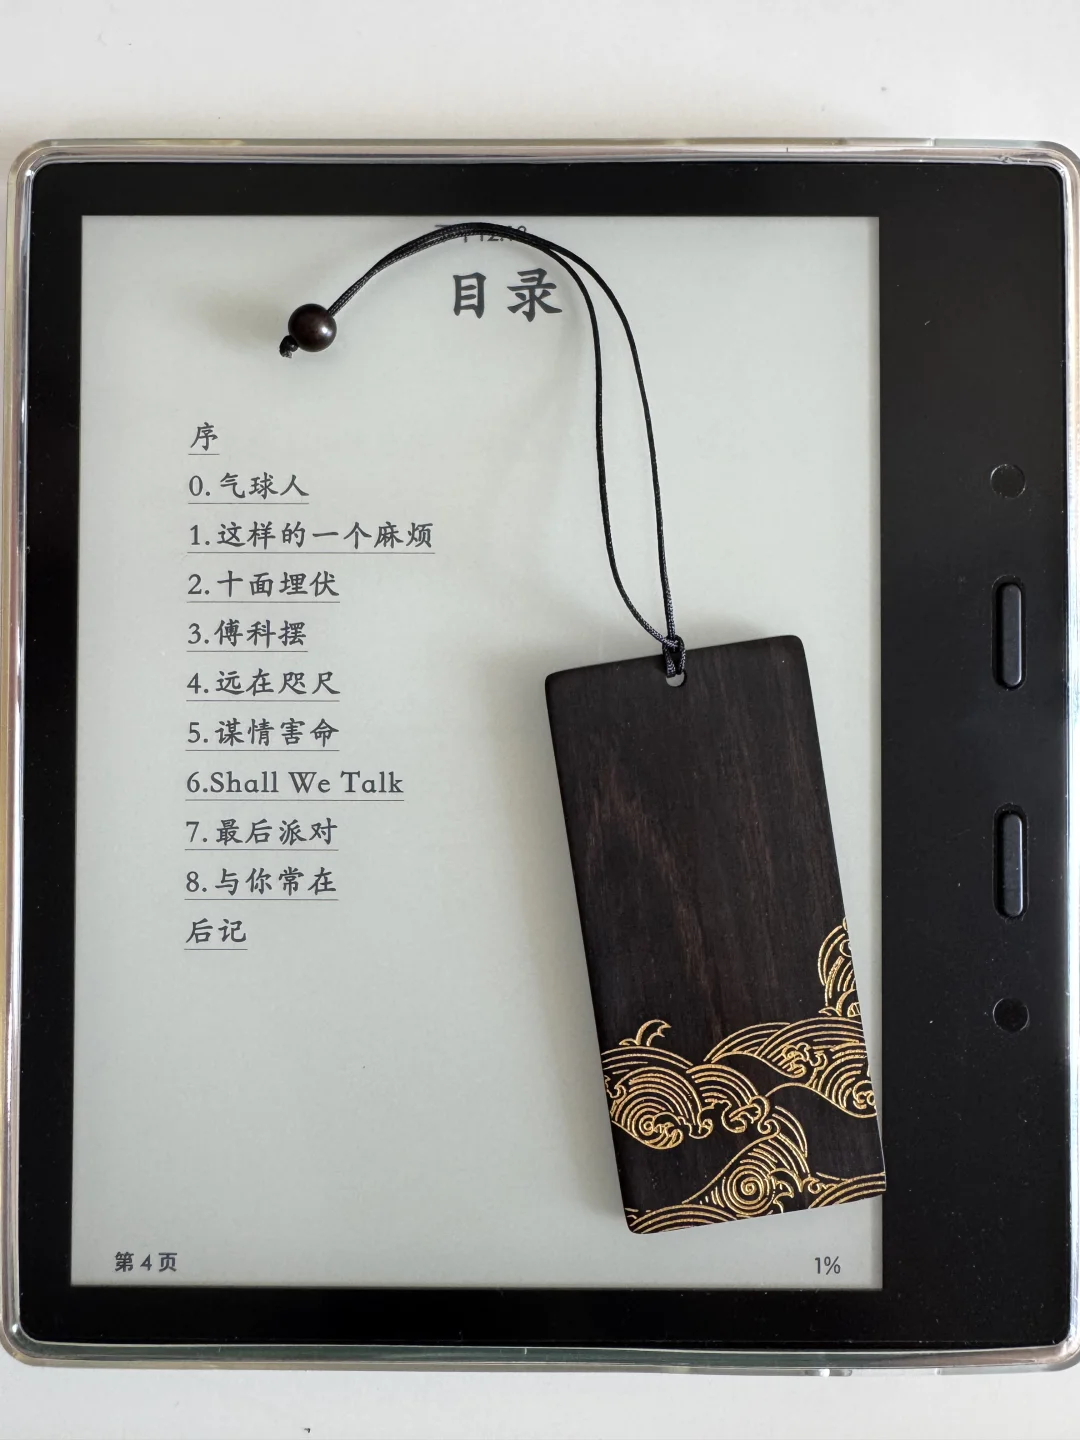 目录
序
0.气球人
1.这样的一个麻烦
2.十面埋伏
3.傅科摆
4.远在咫尺
5.谋情害命
6.Shall We Talk
7.最后派对
8.与你常在
后记
第 4 页
1%